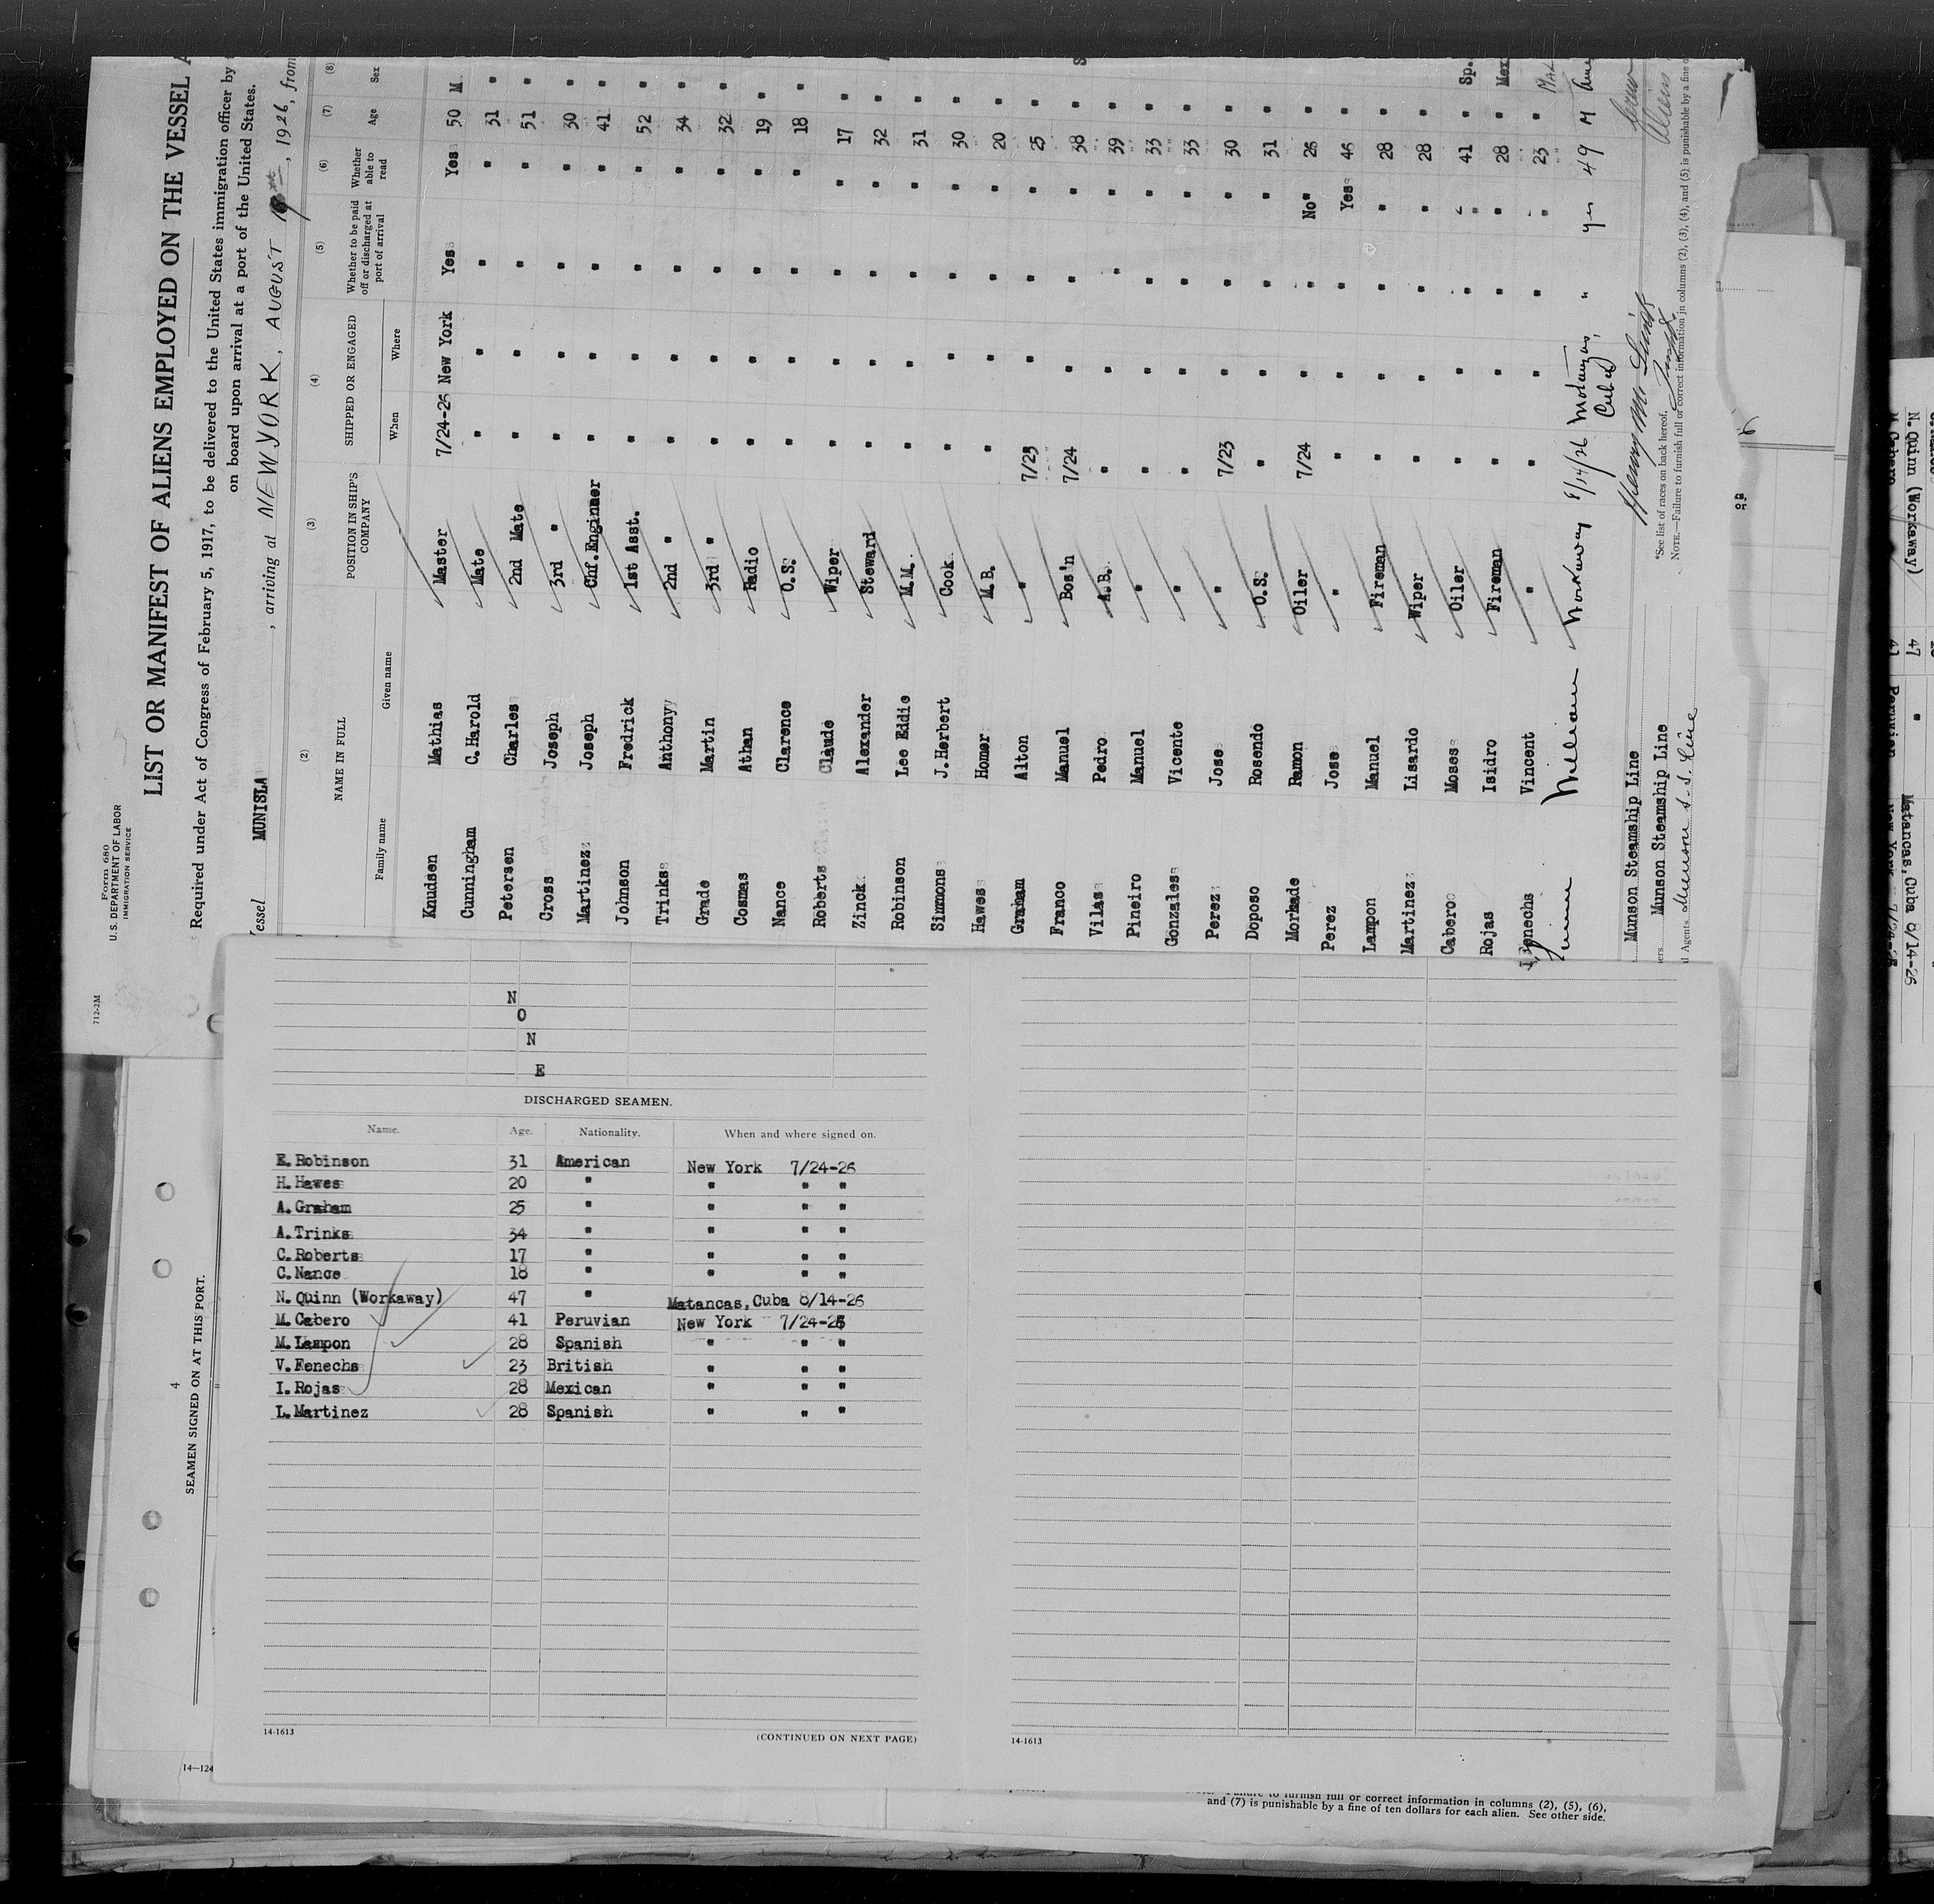 Form 680
U.S. DEPARTMENT OF LABOR
IMMIGRATION SERVICE
712-2M
LIST OR MANIFEST OF ALIENS EMPLOYED ON THE VESSEL
Required under Act of Congress of February 5, 1917, to be delivered to the United States immigration officer by
on board upon arrival at a port of the United States.
Vessel MUNISLA , arriving at NEW YORK, AUGUST , 1926, from
(2) (3) (4) (5) (6) (7) (8)
NAME IN FULL POSITION IN SHIP'S COMPANY SHIPPED OR ENGAGED Whether to be paid off or discharged at port of arrival Whether able to read Age Sex
Family name Given name When Where
Knudsen Mathias Master 7/24-26 New York Yes Yes 50 M
Cunningham C.Harold Mate " " " " 31 "
Petersen Charles 2nd Mate " " " " 51 "
Cross Joseph 3rd " " " " " 30 "
Martinez Joseph Chf.Enginner " " " " 41 "
Johnson Fredrick 1st Asst. " " " " 52 "
Trinks Anthony 2nd " " " " " 34 "
Grade Martin 3rd " " " " " 32 "
Cosmas Athan Radio " " " " 19 "
Nance Clarence O.S. " " " " 18 "
Roberts Claude Wiper " " " " 17 "
Zinck Alexander Steward " " " " 32 "
Robinson Lee Eddie M.M. " " " " 31 "
Simmons J.Herbert Cook " " " " 30 "
Hawes Homer M.B. " " " " 20 "
Graham Alton " 7/23 " " " 25 "
Franco Manuel Bos'n 7/24 " " " 38 "
Vilas Pedro A.B. " " " " 39 "
Pineiro Manuel " " " " " 33 "
Gonzales Vicente " " " " " 33 "
Perez Jose " 7/23 " " " 30 "
Doposo Rosendo O.S. " " " " 31 "
Morhade Ramon Oiler 7/24 " " No 26 "
Perez Jose " " " " Yes 46 "
Lampon Manuel Fireman " " " " 28 "
Martinez Lisardo Wiper " " " " 28 "
Cabero Moses Oiler " " " " 41 " Sp.
Rojas Isidro Fireman " " " " 28 " Mex
Fenechs Vincent " " " " " 23 "
William Workaway 8/14/26 Matanzas, Cuba " yes 49 M
Munson Steamship Line
Munson Steamship Line
Agents Munson S.S. Line
*See list of races on back hereof.
NOTE.—Failure to furnish full or correct information in columns (2), (3), (4), and (5) is punishable by a fine o
N
O
N
E
DISCHARGED SEAMEN.
Name. Age. Nationality. When and where signed on.
E.Robinson 31 American New York 7/24-26
H.Hawes 20 " " " "
A.Graham 25 " " " "
A.Trinks 34 " " " "
C.Roberts 17 " " " "
C.Nance 18 " " " "
N.Quinn (Workaway) 47 " Matancas,Cuba 8/14-26
M.Cabero 41 Peruvian New York 7/24-26
M.Lampon 28 Spanish " " "
V.Fenechs 23 British " " "
I.Rojas 28 Mexican " " "
L.Martinez 28 Spanish " " "
14-1613
(CONTINUED ON NEXT PAGE)
14-1613
4
SEAMEN SIGNED ON AT THIS PORT.
14—124
to furnish full or correct information in columns (2), (5), (6),
and (7) is punishable by a fine of ten dollars for each alien. See other side.
N. Quinn (Workaway) 47 " Matancas,Cuba 8/14-26
M.Cabero 41 Peruvian New York 7/24-26